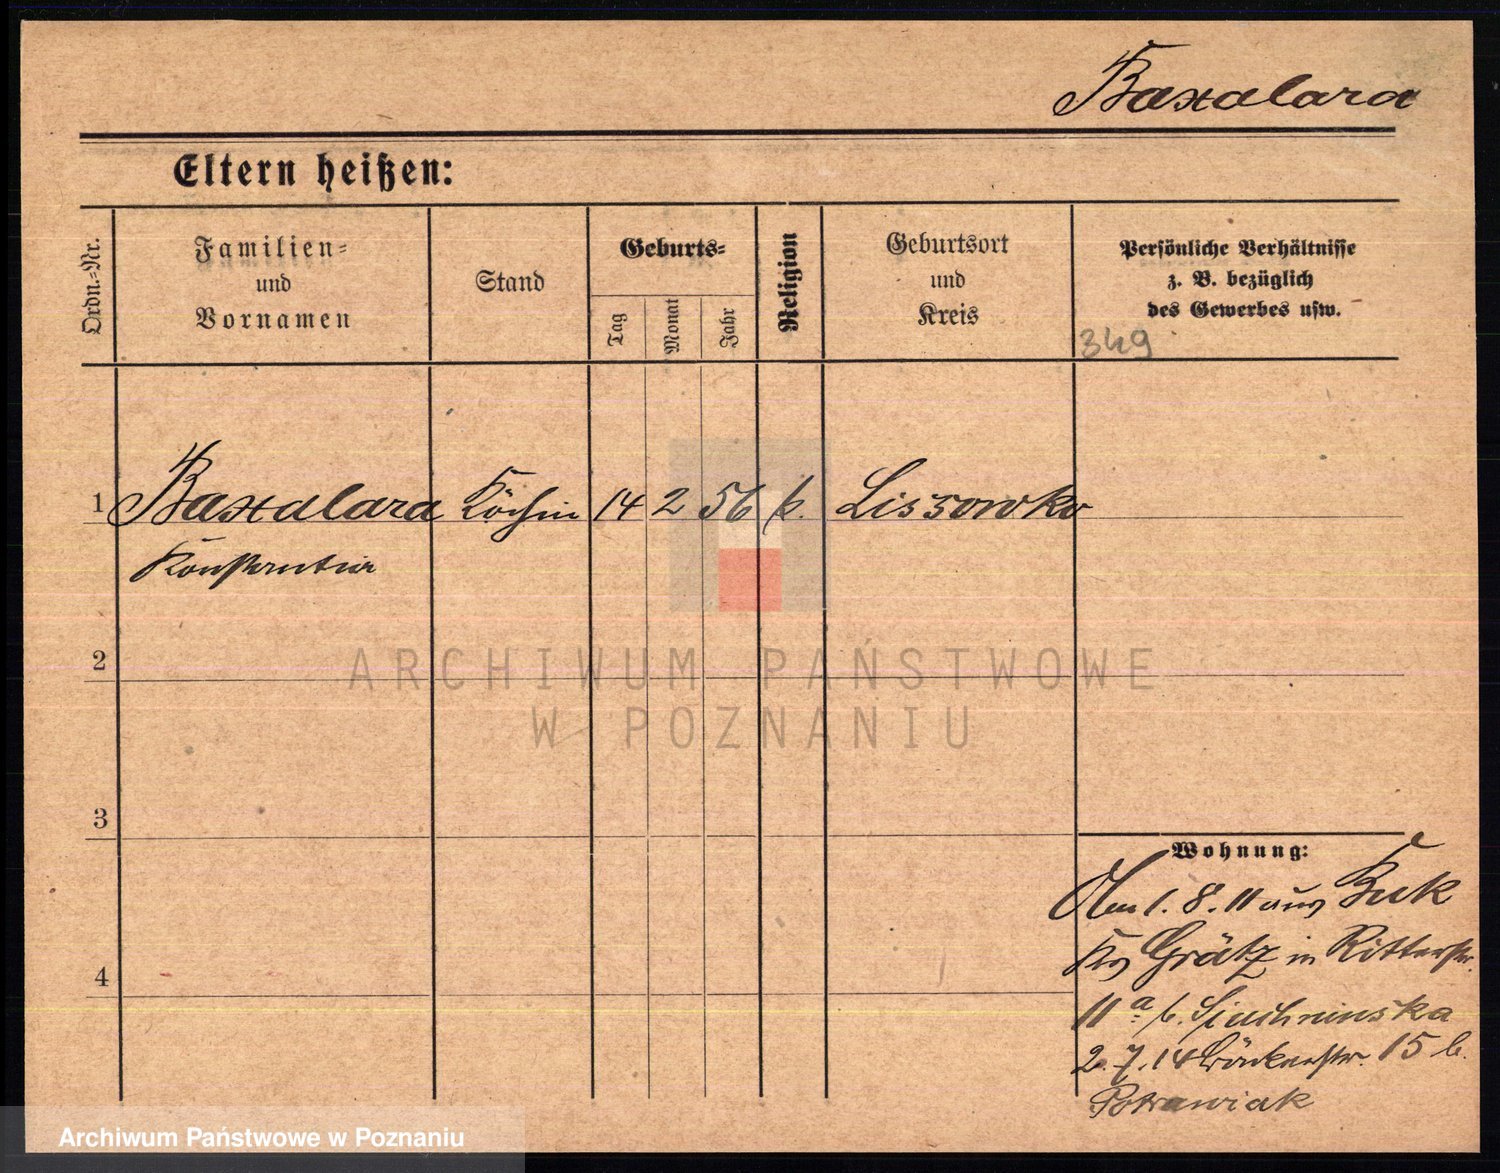 Baxalara
Eltern heißen:
Ordn.-Nr.
Familien-
und
Vornamen
Stand
Geburts-
Tag
Monat
Jahr
Religion
Geburtsort
und
Kreis
Persönliche Verhältnisse
z. B. bezüglich
des Gewerbes usw.
349
1 Baxalara Köchin 14 2 56 k. Lissowko
Konstantia
2
3
4
Wohnung:
Am 1. 8. 11 aus Buk
Krs Grätz in Ritterstr.
11a b.
2. 7. 14 15 b.
Potrawiak
ARCHIWUM PAŃSTWOWE
W POZNANIU
Archiwum Państwowe w Poznaniu